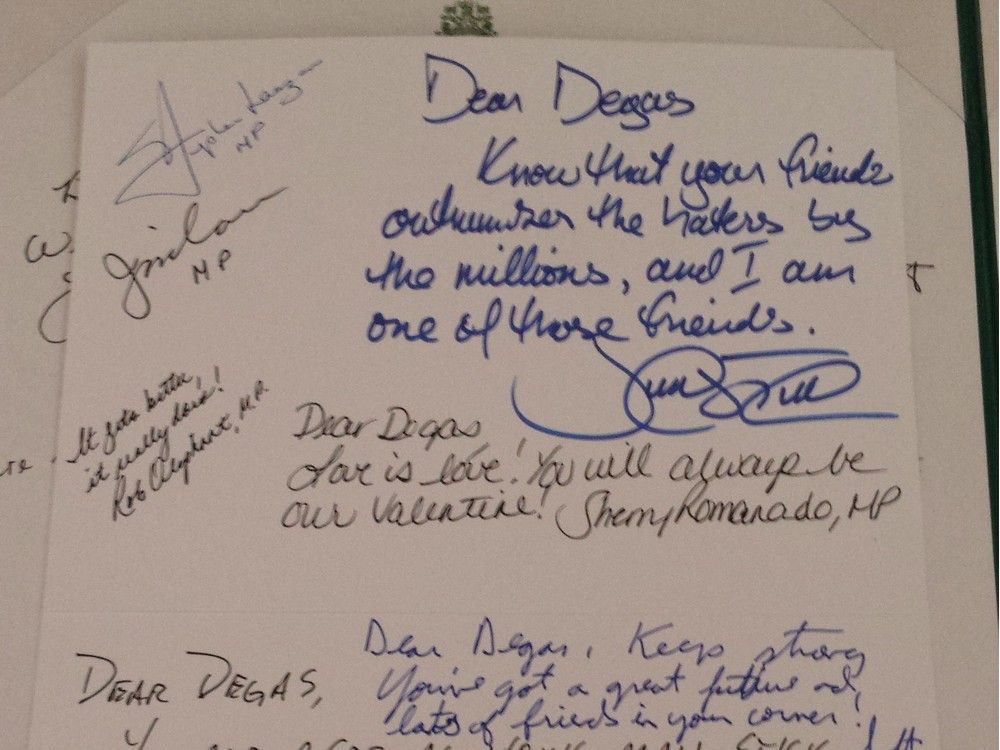 Stephen
MP
MP
Dear Degas
Know that your friends
outnumber the haters by
the millions, and I am
one of those friends.
It gets better,
it really does!
Rob Oliphant, M.P.
Dear Degas
Love is love! You will always be
our Valentine! Sherry Romanado, MP
Dear Degas, Keep strong
You've got a great future and
lots of friends in your corner!
DEAR DEGAS,